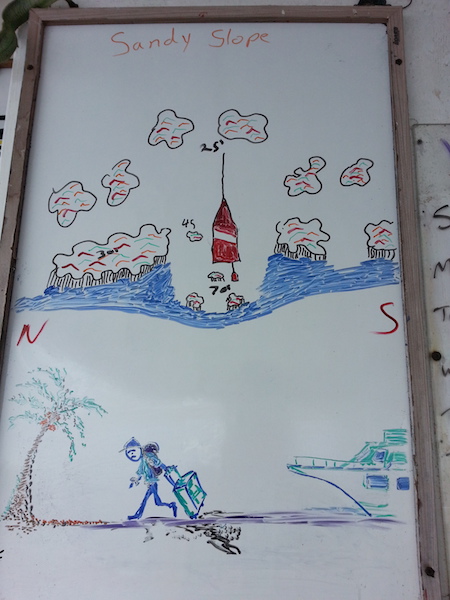 Sandy Slope
25'
45
70'
N S